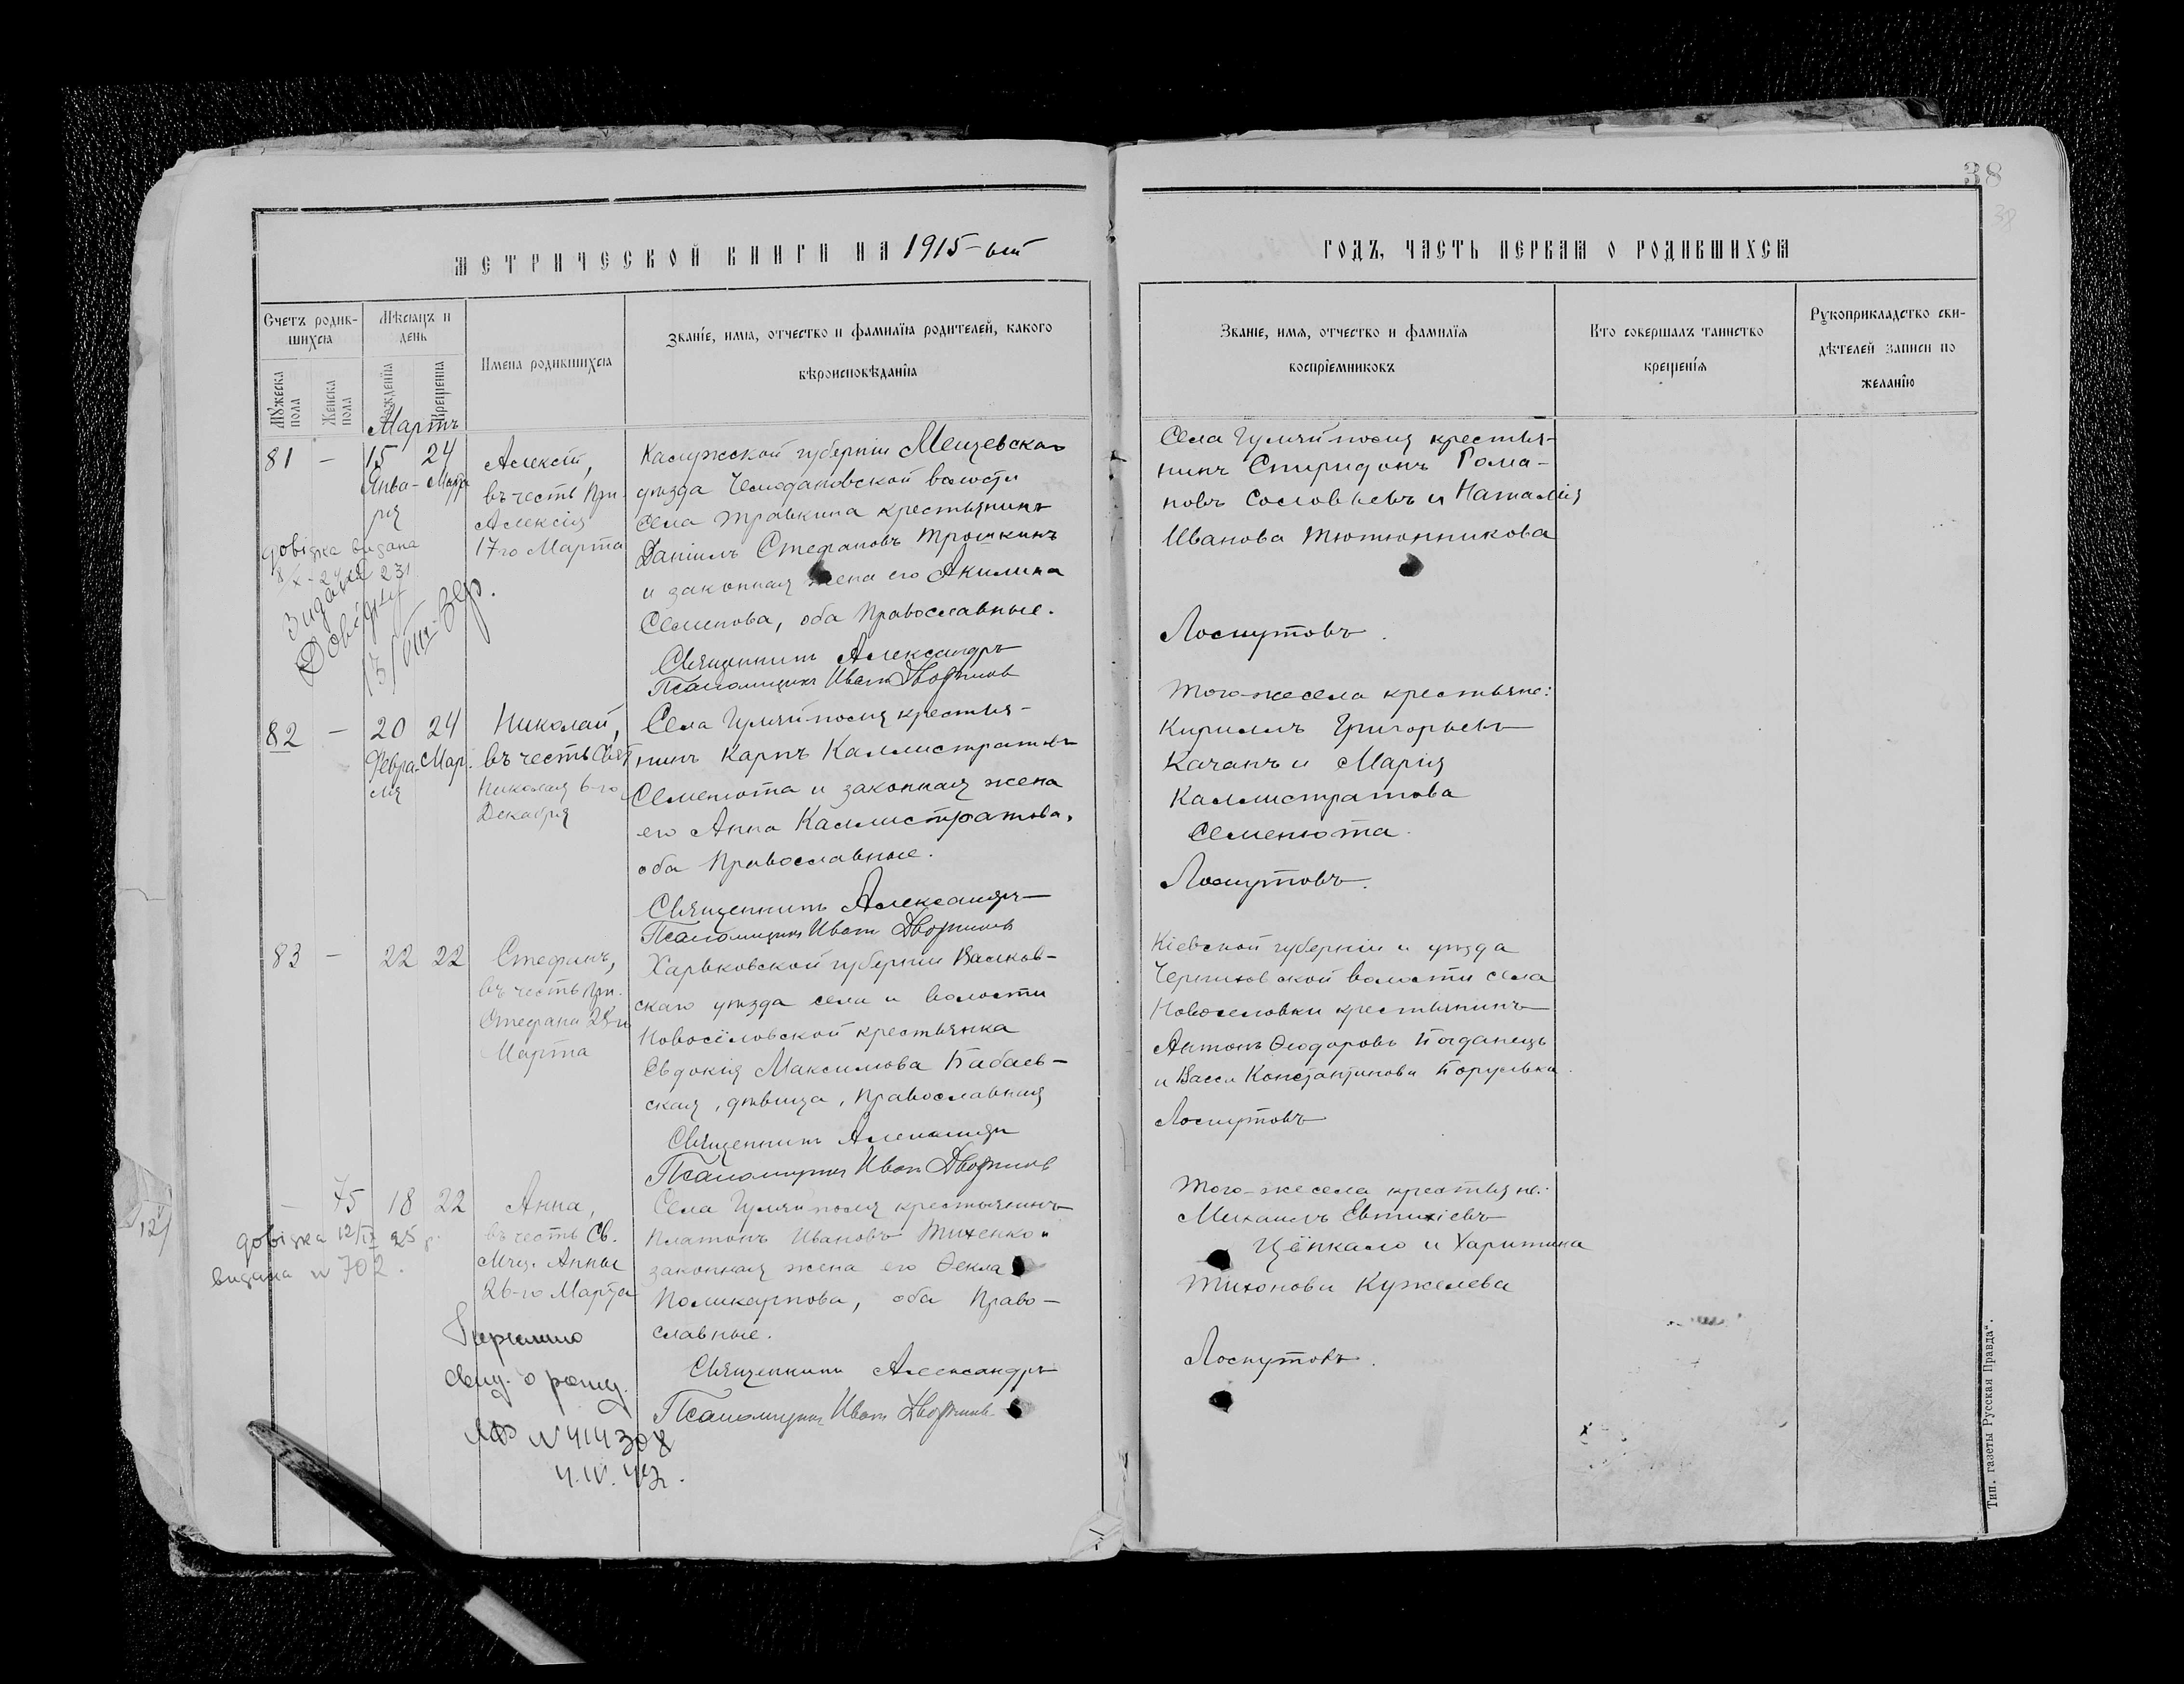 38
38
МЕТРИЧЕСКОЙ КНИГИ НА 1915-ый
ГОДЪ, ЧАСТЬ ПЕРВАЯ О РОДИВШИХСЯ
Счетъ родив-
шихся
Мѣсяцъ и
день
Мужеска
пола
Женска
пола
Рожденія
Крещенія
Имена родившихся
Званіе, имя, отчество и фамилія родителей, какого
вѣроисповѣданія
Званіе, имя, отчество и фамилія
воспріемниковъ
Кто совершалъ таинство
крещенія
Рукоприкладство сви-
дѣтелей записи по
желанію
Мартъ
81 — 15 24
Янва- Мар.
ря
Алексій,
въ честь Пр.
Алексія
17го Марта
Калужской губерніи Мещевска
уѣзда Чемодановской волости
села Травкина крестьянинъ
Даніилъ Стефановъ Трошкинъ
и законная жена его Акилина
Семенова, оба Православные.
Священникъ Александръ
Псаломщикъ Иванъ Дворников
Села Гуляйполя крестья-
нинъ Спиридонъ Рома-
новъ Соловьевъ и Наталія
Иванова Тютюнникова
Лоскутовъ.
довідка видана
231
Довідку
82 — 20 24
Февра- Мар.
ля
Николай,
въ честь Свят.
Николая 6-го
Декабря
Села Гуляйполя крестья-
нинъ Карпъ Каллистратовъ
Семенюта и законная жена
его Анна Каллистратова,
оба Православные.
Священникъ Александръ
Псаломщикъ Иванъ Дворников
Того-же села крестьяне:
Кириллъ Григорьевъ
Качанъ и Марія
Каллистратова
Семенюта.
Лоскутовъ.
83 — 22 22
Стефанъ,
въ честь Пр.
Стефана 28-го
Марта
Харьковской губерніи Валков-
скаго уѣзда села и волости
Новосёловской крестьянка
Евдокія Максимова Бабаев-
ская, дѣвица, Православная
Священникъ Александръ
Псаломщикъ Иванъ Дворников
Кіевской губерніи и уѣзда
волости села
Новоселовки крестьянинъ
Антонъ Ѳеодоровъ Богданецъ
и Васса Константинова
Лоскутовъ
— 75 18 22
Анна,
въ честь Св.
Мчц. Анны
26-го Марта
Села Гуляйполя крестьянинъ
Платонъ Ивановъ Тихенко и
законная жена его Ѳекла
Поликарпова, оба Право-
славные.
Священникъ Александръ
Псаломщикъ Иванъ Дворников
Того-же села крестьяне:
Михаилъ Евтихіевъ
Цёпкало и Харитина
Тихонова Кужелева
Лоскутовъ.
довідка 12/IV 25 р.
видана № 702.
свид. о рожд.
№ 414308
4.IV.42.
Тип. газеты Русская Правда".